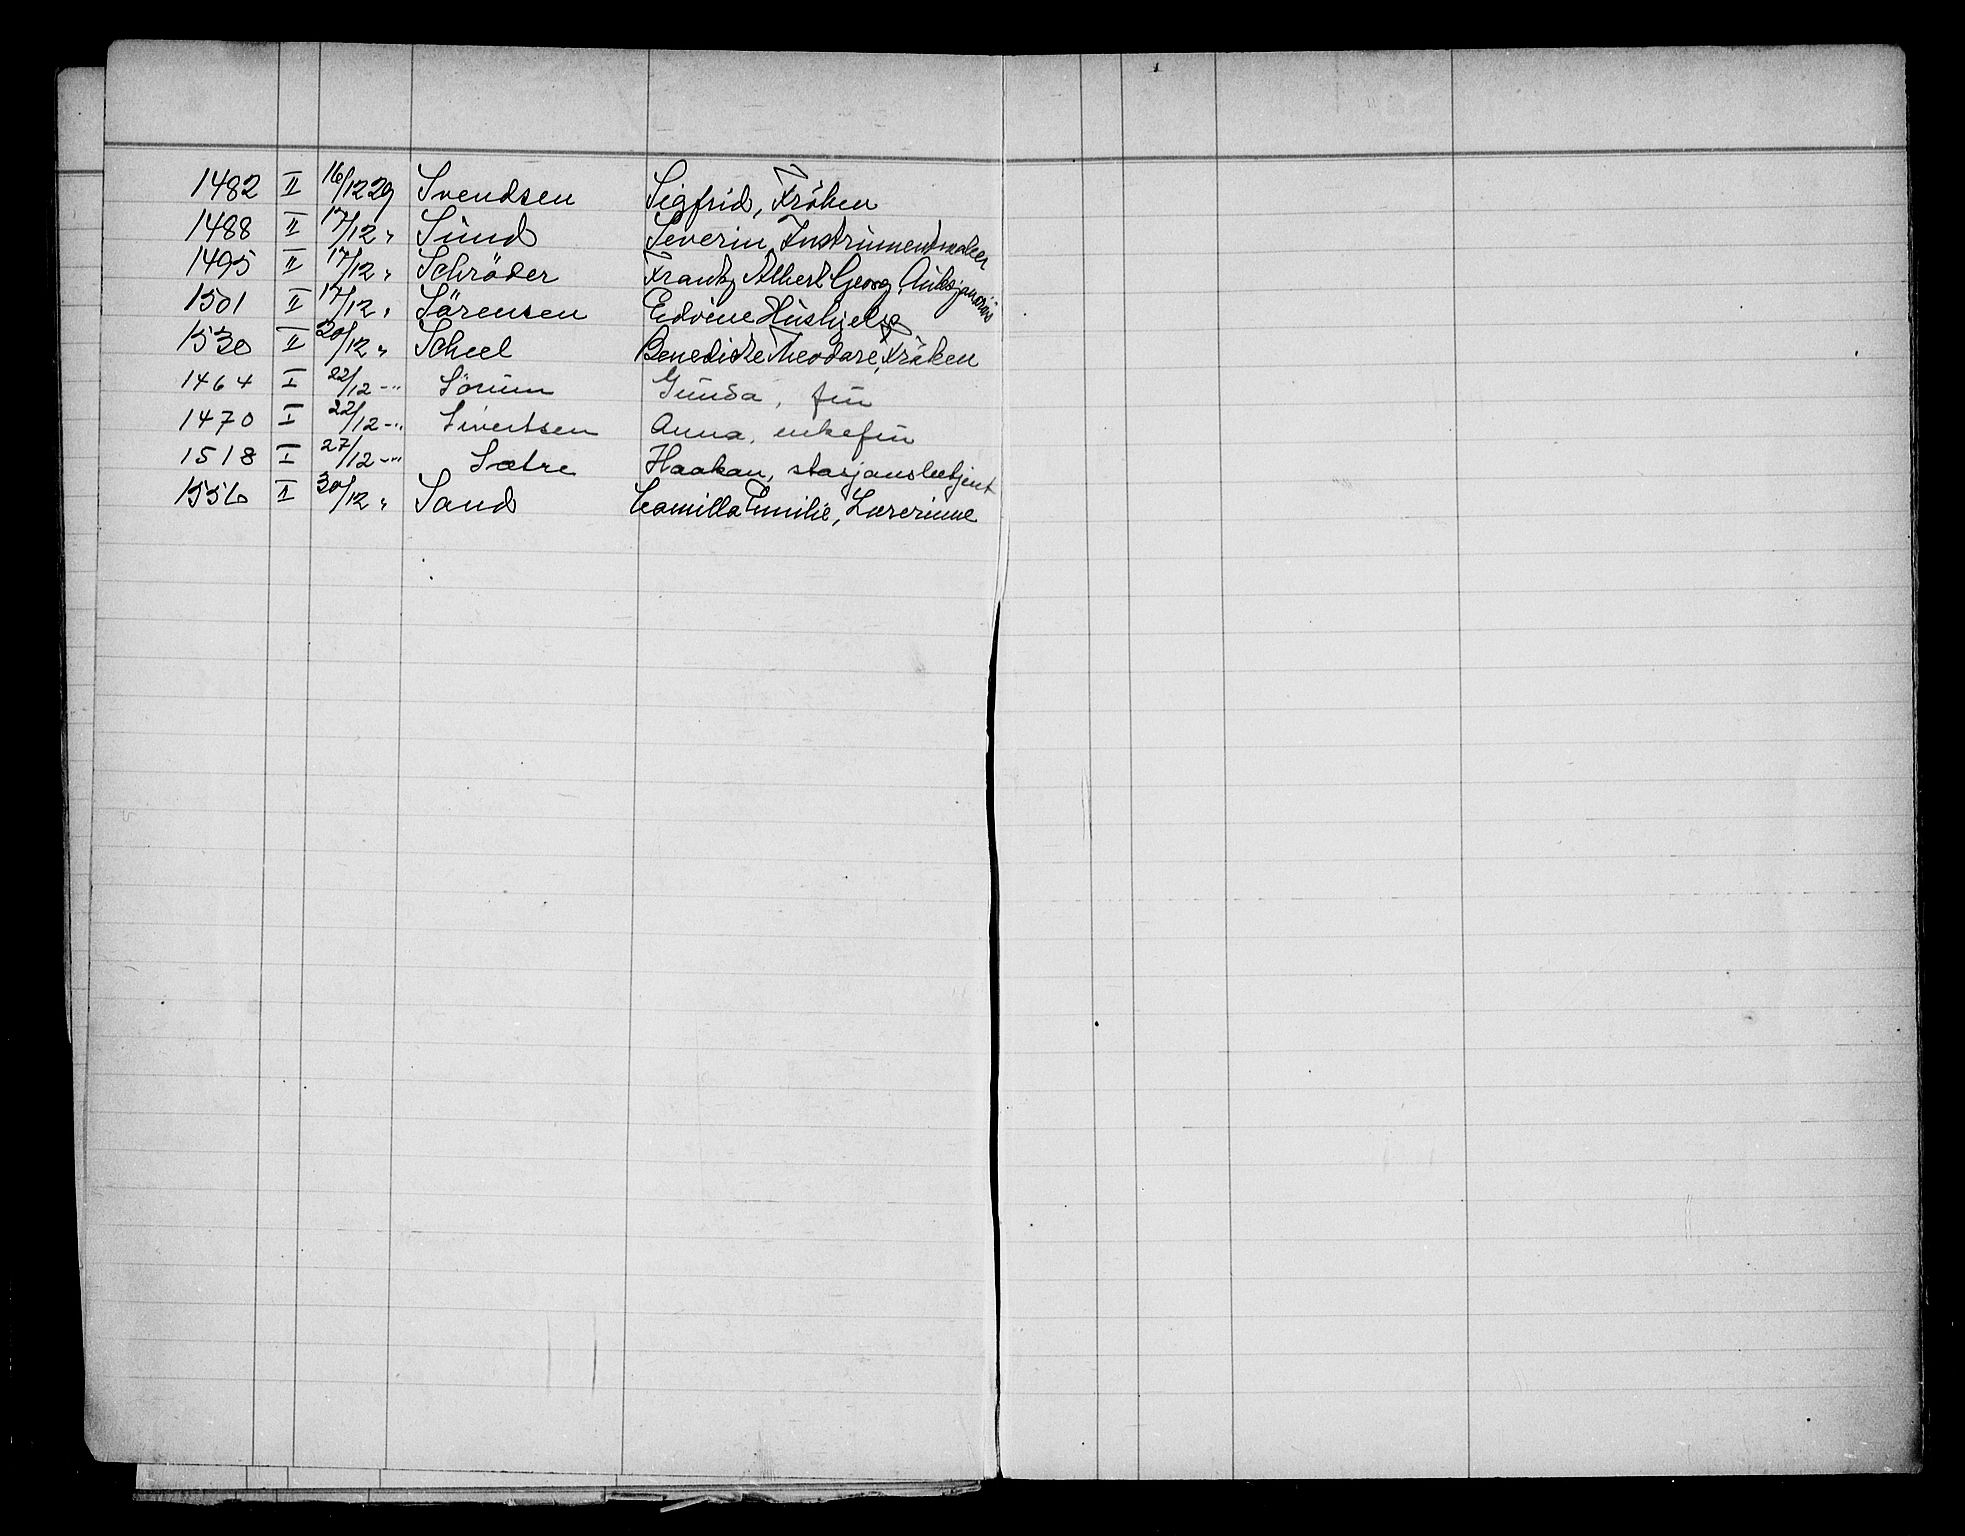 1482 II 16/12 29 Svendsen Sigfrid, Frøken
1488 II 17/12 " Sund Severin Instrumentmaker
1495 II 17/12 " Schröder Frantz Albert Georg,
1501 II 17/12 " Sörensen Edvine Hushjelp
1530 II 20/12 " Scheel Benedicte Theodore, Fröken
1464 I 22/12 -"- Sörum Gunda, fru
1470 I 22/12 -"- Sivertsen Anna, enkefru
1518 I 27/12 -"- Sætre Haakon, stasjonsbetjent
1556 II 30/12 " Sand Camilla Emilie, Lærerinne